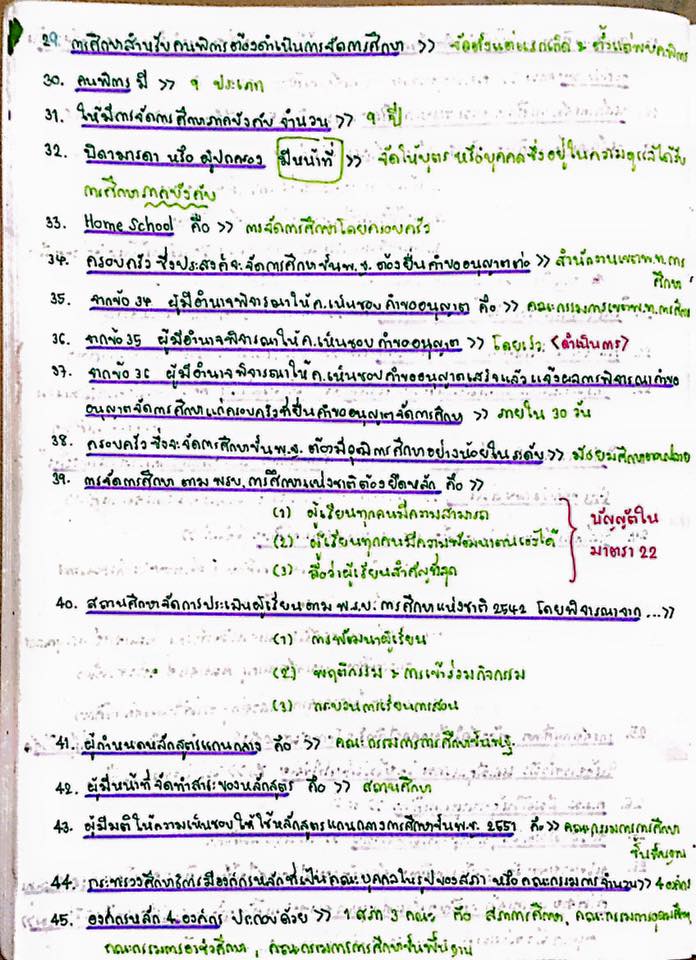 29. การศึกษาสำหรับคนพิการต้องดำเนินการจัดการศึกษา >> จัดตั้งแต่แรกเกิด & ตั้งแต่พบความพิการ
30. คนพิการ มี >> 9 ประเภท
31. ให้มีการจัดการศึกษาภาคบังคับ จำนวน >> 9 ปี
32. บิดามารดา หรือ ผู้ปกครอง มีหน้าที่ >> จัดให้บุตร หรือบุคคลซึ่งอยู่ในความดูแลได้รับ
การศึกษาภาคบังคับ
33. Home School คือ >> การจัดการศึกษาโดยครอบครัว
34. ครอบครัว ซึ่งประสงค์จะจัดการศึกษาขั้นพ.ฐ. ต้องยื่นคำขออนุญาตต่อ >> สำนักงานเขตพ.ท.การ
ศึกษา
35. จากข้อ 34 ผู้มีอำนาจพิจารณาให้ค.เห็นชอบ คำขออนุญาต คือ >> คณะกรรมการเขตพ.ท.การศึกษา
36. จากข้อ 35 ผู้มีอำนาจพิจารณาให้ค.เห็นชอบ คำขออนุญาต >> โดยเร็ว <ดำเนินการ>
37. จากข้อ 36 ผู้มีอำนาจพิจารณาให้ค.เห็นชอบคำขออนุญาตเสร็จแล้ว แจ้งผลการพิจารณาคำขอ
อนุญาตจัดการศึกษาแก่ครอบครัวที่ยื่นคำขออนุญาตจัดการศึกษา >> ภายใน 30 วัน
38. ครอบครัว ซึ่งจะจัดการศึกษาขั้นพ.ฐ. ต้องมีวุฒิการศึกษาอย่างน้อยในระดับ >> มัธยมศึกษาตอนปลาย
39. การจัดการศึกษา ตาม พรบ. การศึกษาแห่งชาติต้องยึดหลัก คือ >>
(1) ผู้เรียนทุกคนมีความสามารถ
(2) ผู้เรียนทุกคนมีความพัฒนาตนเองได้
(3) ถือว่าผู้เรียนสำคัญที่สุด
บัญญัติใน
มาตรา 22
40. สถานศึกษาจัดการประเมินผู้เรียนตาม พ.ร.บ. การศึกษาแห่งชาติ 2542 โดยพิจารณาจาก ... >>
(1) การพัฒนาผู้เรียน
(2) พฤติกรรม & การเข้าร่วมกิจกรรม
(3) กระบวนการเรียนการสอน
41. ผู้กำหนดหลักสูตรแกนกลาง คือ >> คณะกรรมการการศึกษาขั้นพฐ.
42. ผู้มีหน้าที่จัดทำสาระของหลักสูตร คือ >> สถานศึกษา
43. ผู้มีมติให้ความเห็นชอบ ให้ใช้หลักสูตรแกนกลางการศึกษาขั้นพ.ฐ. 2551 คือ >> คณะกรรมการการศึกษา
ขั้นพื้นฐาน
44. กระทรวงศึกษาธิการมีองค์กรหลักที่เป็นคณะบุคคลในรูปของสภา หรือ คณะกรรมการ จำนวน >> 4 องค์กร
45. องค์กรหลัก 4 องค์กร ประกอบด้วย >> 1 สภา 3 คณะ คือ สภาการศึกษา, คณะกรรมการอุดมศึกษา,
คณะกรรมการอาชีวศึกษา, คณะกรรมการการศึกษาขั้นพื้นฐาน